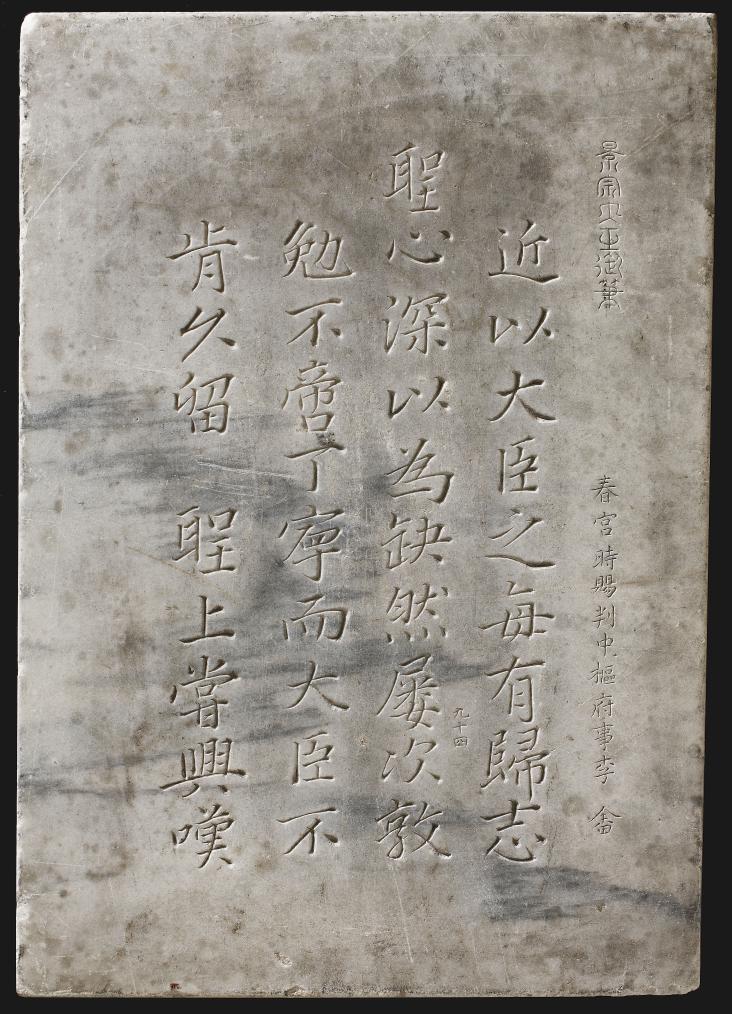 景宗大王御筆
春宮時賜判中樞府事李畬
近以大臣之每有歸志
聖心深以為缺然屢次敦
九十四
勉不啻丁寧而大臣不
肯久留 聖上嘗興嘆